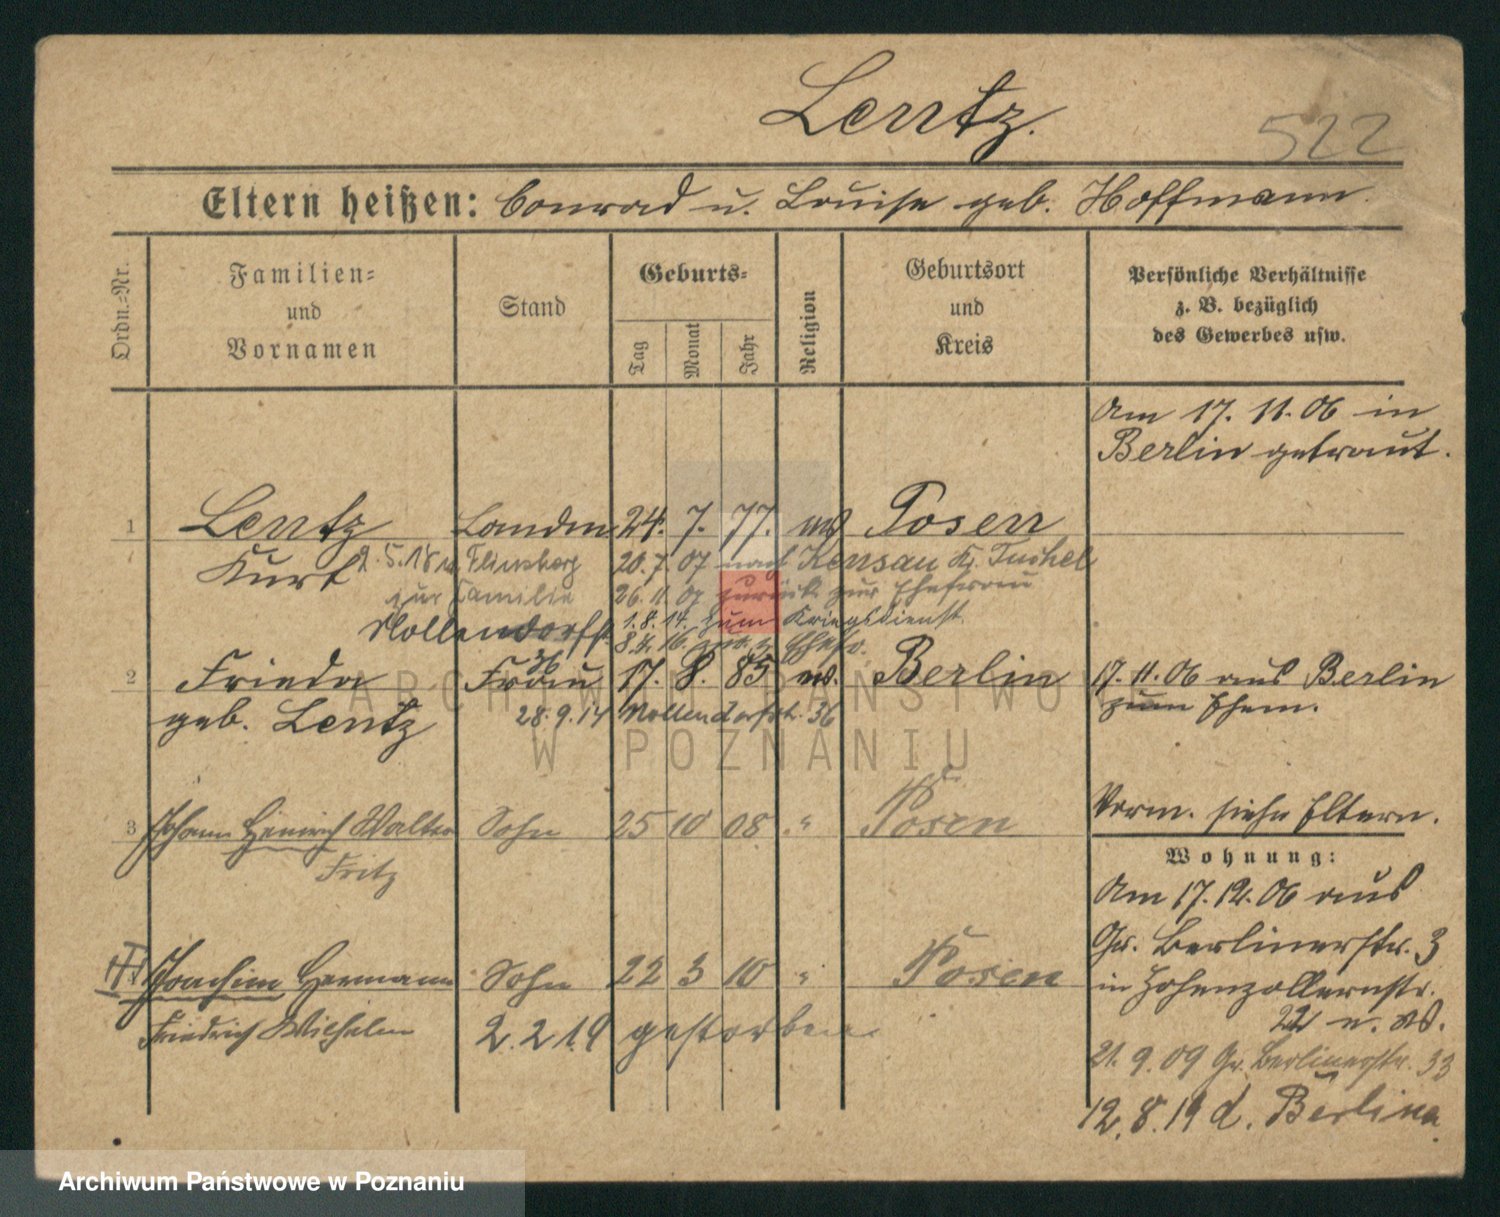 Lentz.
522
Eltern heißen: Conrad u. Louise geb. Hoffmann.
Ordn.-Nr.
Familien-
und
Vornamen
Stand
Geburts-
Tag
Monat
Jahr
Religion
Geburtsort
und
Kreis
Persönliche Verhältnisse
z. B. bezüglich
des Gewerbes usw.
Am 17. 11. 06 in
Berlin getraut.
1 Lentz 24. 7. 77. ev Posen
Kurt 2. 5. 18 Flinsberg 20. 7. 07 nach Kensau K. Tuchel
zur Familie 26. 11. 07 zurück zur Ehefrau
Nollendorfstr. 1. 8. 14. zum Kriegsdienst
36 8. 4. 16 z. Ehefr.
2 Frieda Frau 17. 8. 85 ev. Berlin 17. 11. 06 aus Berlin
zum Ehem.
geb. Lentz 28. 9. 14 Nollendorfstr. 36
ARCHIWUM PAŃSTWOWE
W POZNANIU
3 Johann Heinrich Walter Sohn 25 10 08 " Posen
Fritz
Verm. siehe Eltern.
Wohnung:
Am 17. 12. 06 aus
Gr. Berlinerstr. 3
in Hohenzollernstr.
22 n. W.
III Joachim Hermann Sohn 22 3 10 " Posen
Friedrich Wilhelm 2. 2 19 gestorben
21. 9. 09 Gr. Berlinerstr. 33
12. 8. 19 d. Berlin
Archiwum Państwowe w Poznaniu